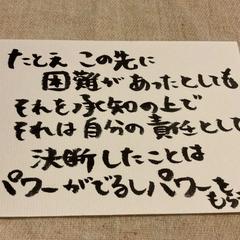 たとえ この先に
困難があったとしても
それを承知の上で
それは自分の責任として
決断したことは
パワーがでるしパワーを
もら